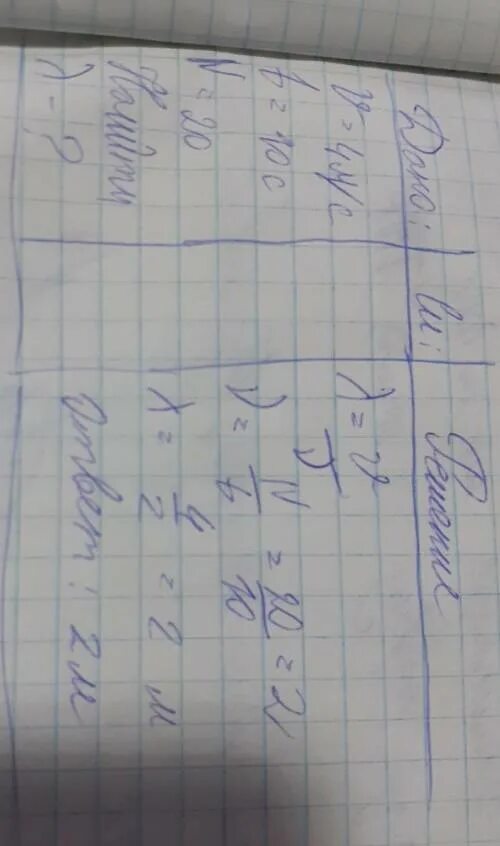 Дано:
V = 4 м/с
t = 10 с
N = 20
Найти
λ - ?
си:
Решение
λ = V/ν
ν = N/t = 20/10 = 2
λ = 4/2 = 2 м
Ответ: 2 м